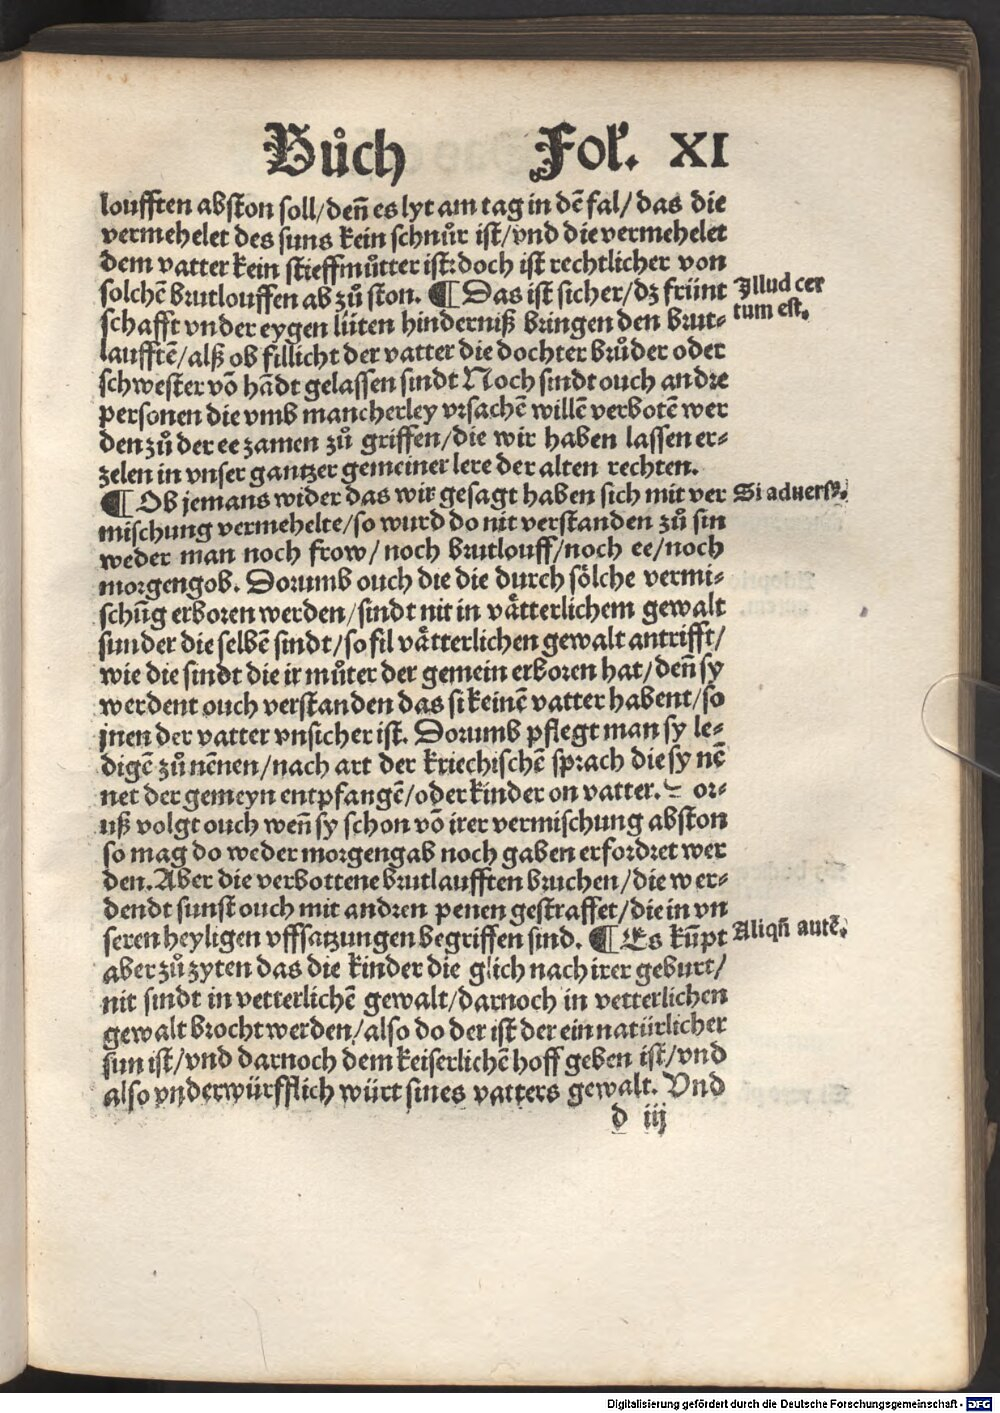 Bůch Fol. XI
loufften abston soll/denñ es lyt am tag in dē fal/das die
vermehelet des suns kein schnůr ist/vnd die vermehelet
dem vatter kein stieffmůtter ist:doch ist rechtlicher von
solchē brutlouffen ab zů ston. ¶ Das ist sicher/dz früint
Illud cer
schafft vnder eygen lüten hinderniß bringen den brut⸗
tum est.
laufftē/alß ob fillicht der vatter die dochter brůder oder
schwester vō hādt gelassen sindt Noch sindt ouch andre
personen die vmb mancherley vrsachē willē verbotē wer
den zů der ee zamen zů griffen/die wir haben lassen er⸗
zelen in vnser gantzer gemeiner lere der alten rechten.
¶ Ob jemans wider das wir gesagt haben sich mit ver
Si aduers9.
mischung vermehelte/so wurd do nit verstanden zů sin
weder man noch frow/noch brutlouff/noch ee/noch
morgengob. Dorumb ouch die die durch sölche vermi⸗
schūg erboren werden/sindt nit in vätterlichem gewalt
sunder die selbē sindt/so fil vätterlichen gewalt antrifft/
wie die sindt die ir můter der gemein erboren hat/deñ sy
werdent ouch verstanden das si keinē vatter habent/so
jnen der vatter vnsicher ist. Dorumb pflegt man sy le⸗
digē zů nēnen/nach art der kriechischē sprach die sy nē
net der gemeyn entpfangē/oder kinder on vatter. or⸗
uß volgt ouch weñ sy schon vō irer vermischung abston
so mag do weder morgengab noch gaben erfordret wer
den. Aber die verbottene brutlaufften bruchen/die wer⸗
dendt sunst ouch mit andren penen gestraffet/die in vn
seren heyligen vffsatzungen begriffen sind. ¶ Es kūpt
Aliqñ autē.
aber zů zyten das die kinder die glich nach irer geburt/
nit sindt in vetterlichē gewalt/darnoch in vetterlichen
gewalt brocht werden/also do der ist der ein natürlicher
sun ist/vnd darnoch dem keiserlichē hoff geben ist/vnd
also vnderwürfflich würt sines vatters gewalt. Vnd
d iij
Digitalisierung gefördert durch die Deutsche Forschungsgemeinschaft - DFG